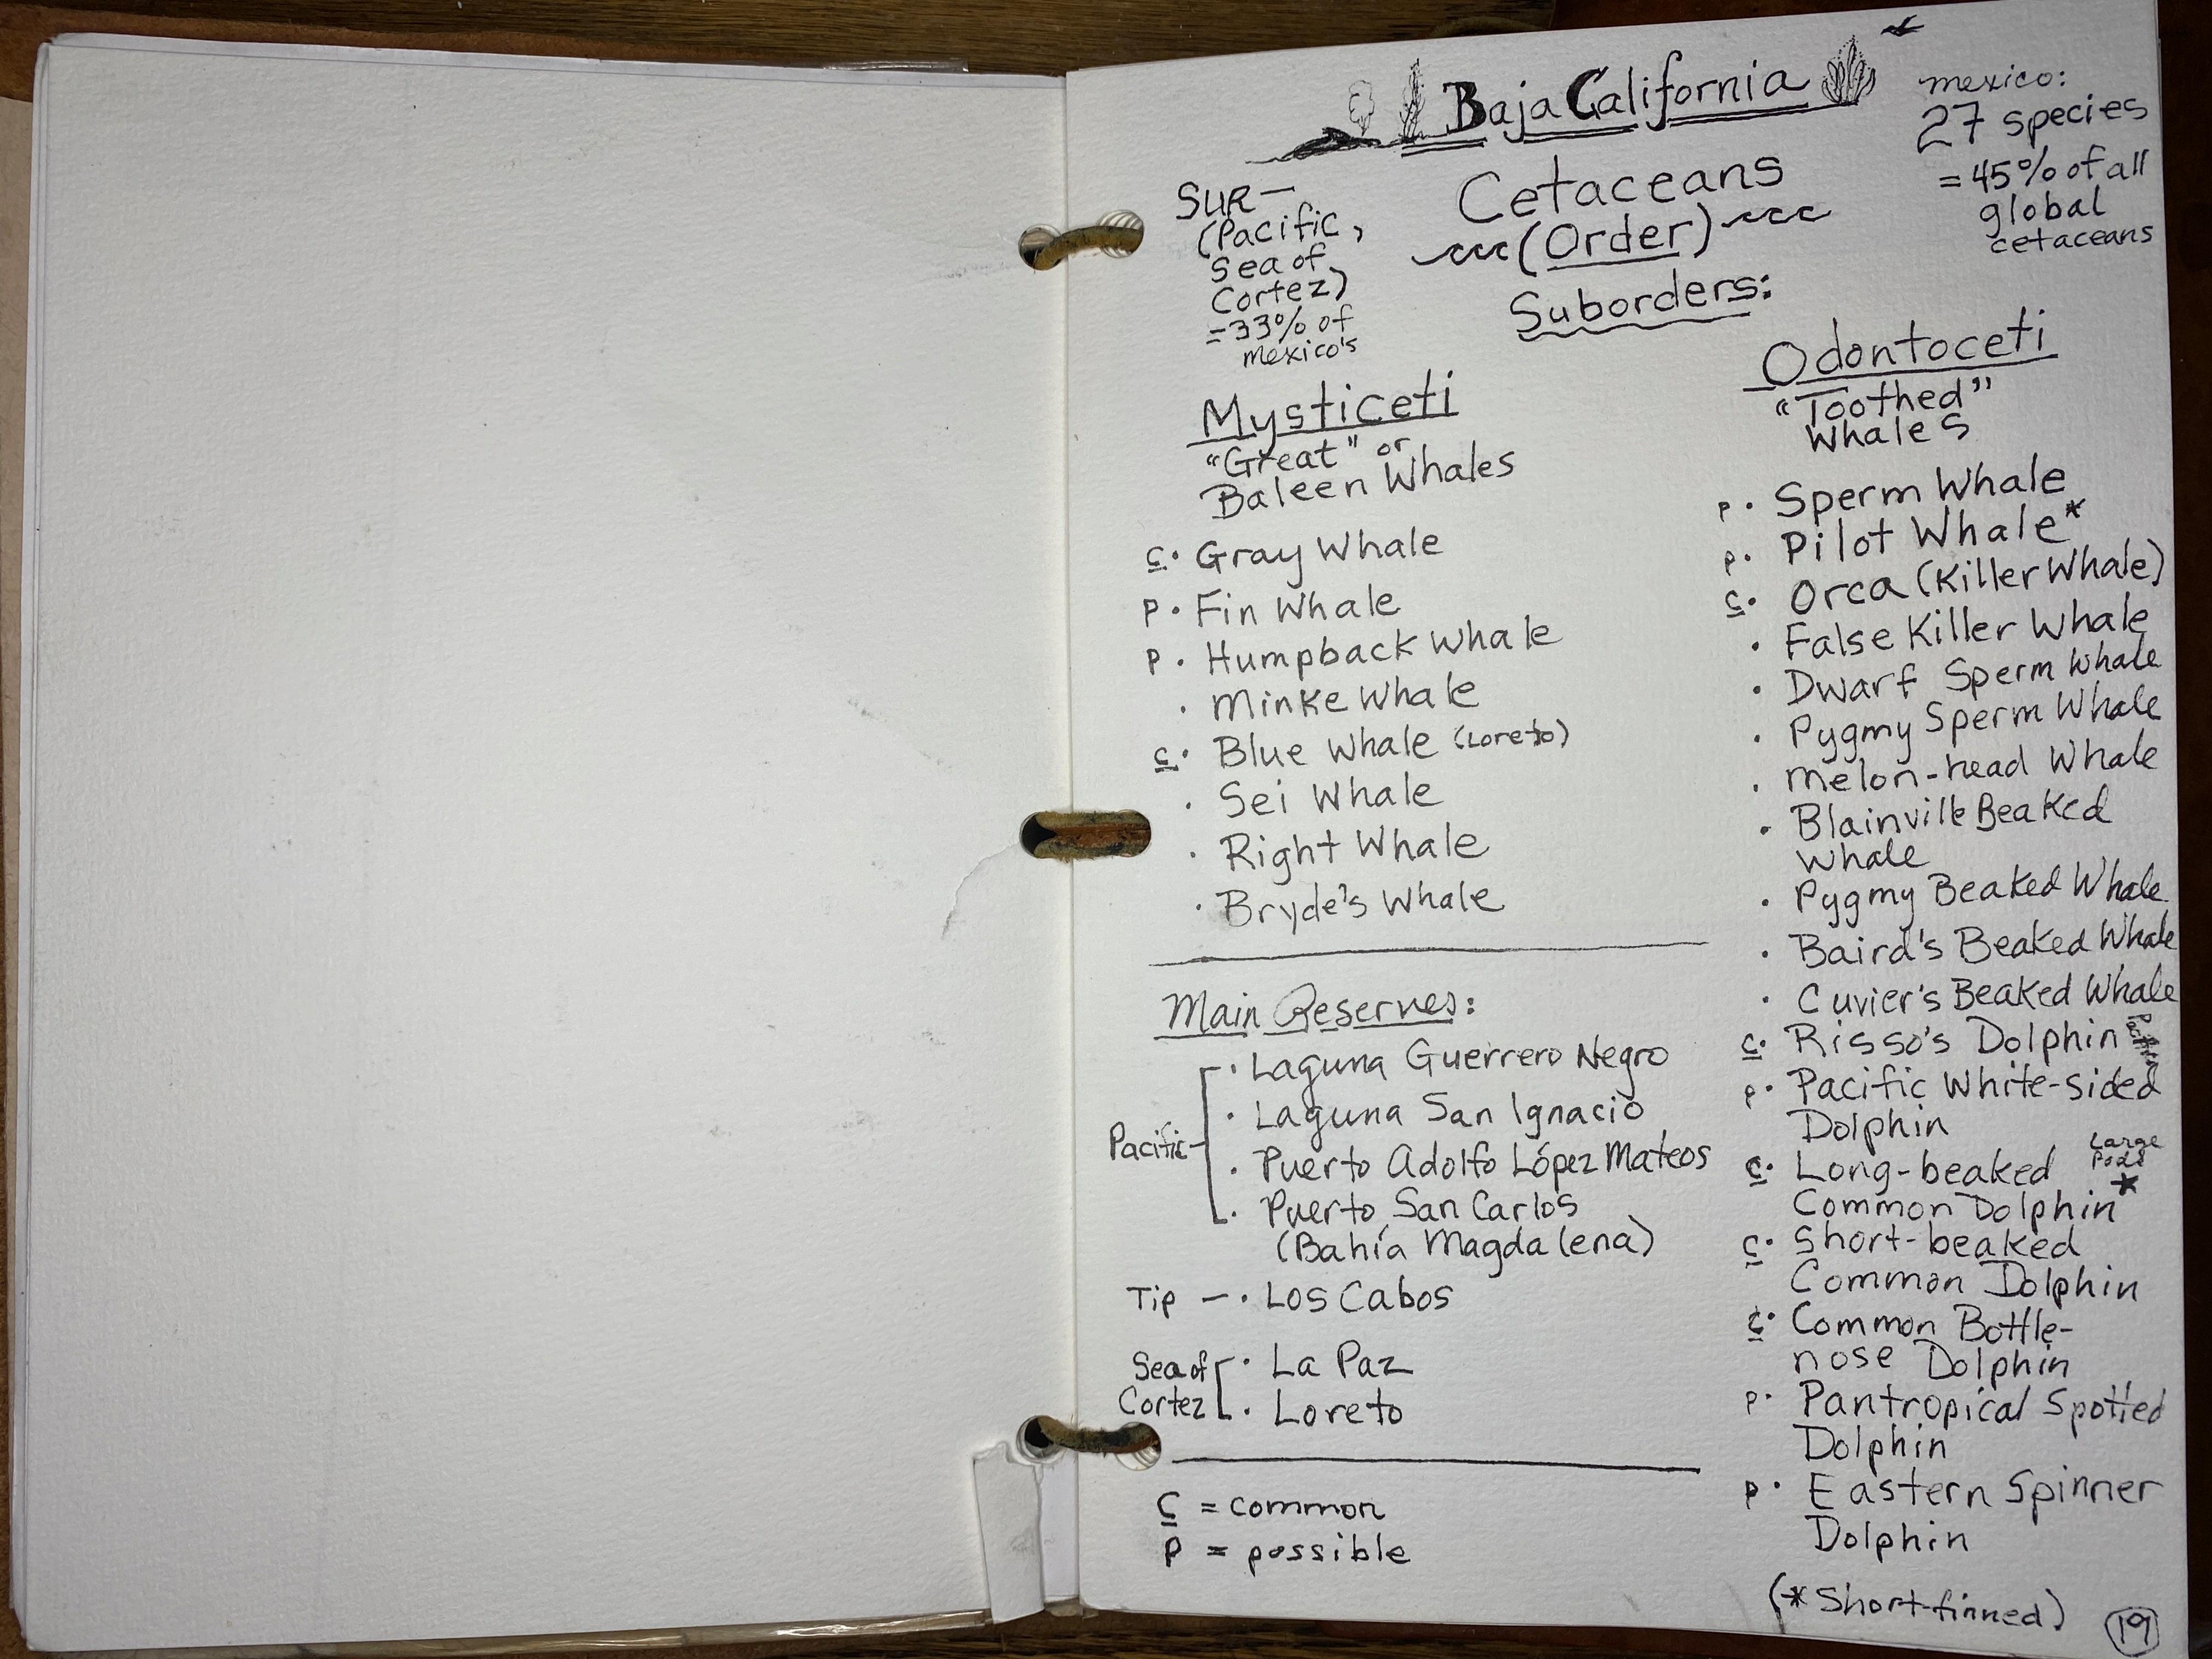 Baja California
mexico:
27 species
= 45% of all
global
cetaceans
Cetaceans
(Order)
Suborders:
SUR —
(Pacific,
Sea of
Cortez)
=33% of
mexico's
Mysticeti
"Great" or
Baleen Whales
c · Gray Whale
P · Fin Whale
P · Humpback Whale
· Minke Whale
c · Blue Whale (Loreto)
· Sei Whale
· Right Whale
· Bryde's Whale
Main Reserves:
Pacific
· Laguna Guerrero Negro
· Laguna San Ignacio
· Puerto Adolfo López Mateos
· Puerto San Carlos
(Bahía Magdalena)
Tip — · Los Cabos
Sea of
Cortez
· La Paz
· Loreto
c = common
P = possible
Odontoceti
"Toothed"
Whales
P · Sperm Whale
P · Pilot Whale*
c · Orca (Killer Whale)
· False Killer Whale
· Dwarf Sperm Whale
· Pygmy Sperm Whale
· Melon-head Whale
· Blainville Beaked
Whale
· Pygmy Beaked Whale
· Baird's Beaked Whale
· Cuvier's Beaked Whale
c · Risso's Dolphin
P · Pacific White-sided
Dolphin
c · Long-beaked
Common Dolphin*
Large
Pods
c · Short-beaked
Common Dolphin
c · Common Bottle-
nose Dolphin
P · Pantropical Spotted
Dolphin
P · Eastern Spinner
Dolphin
(*Short-finned)
19